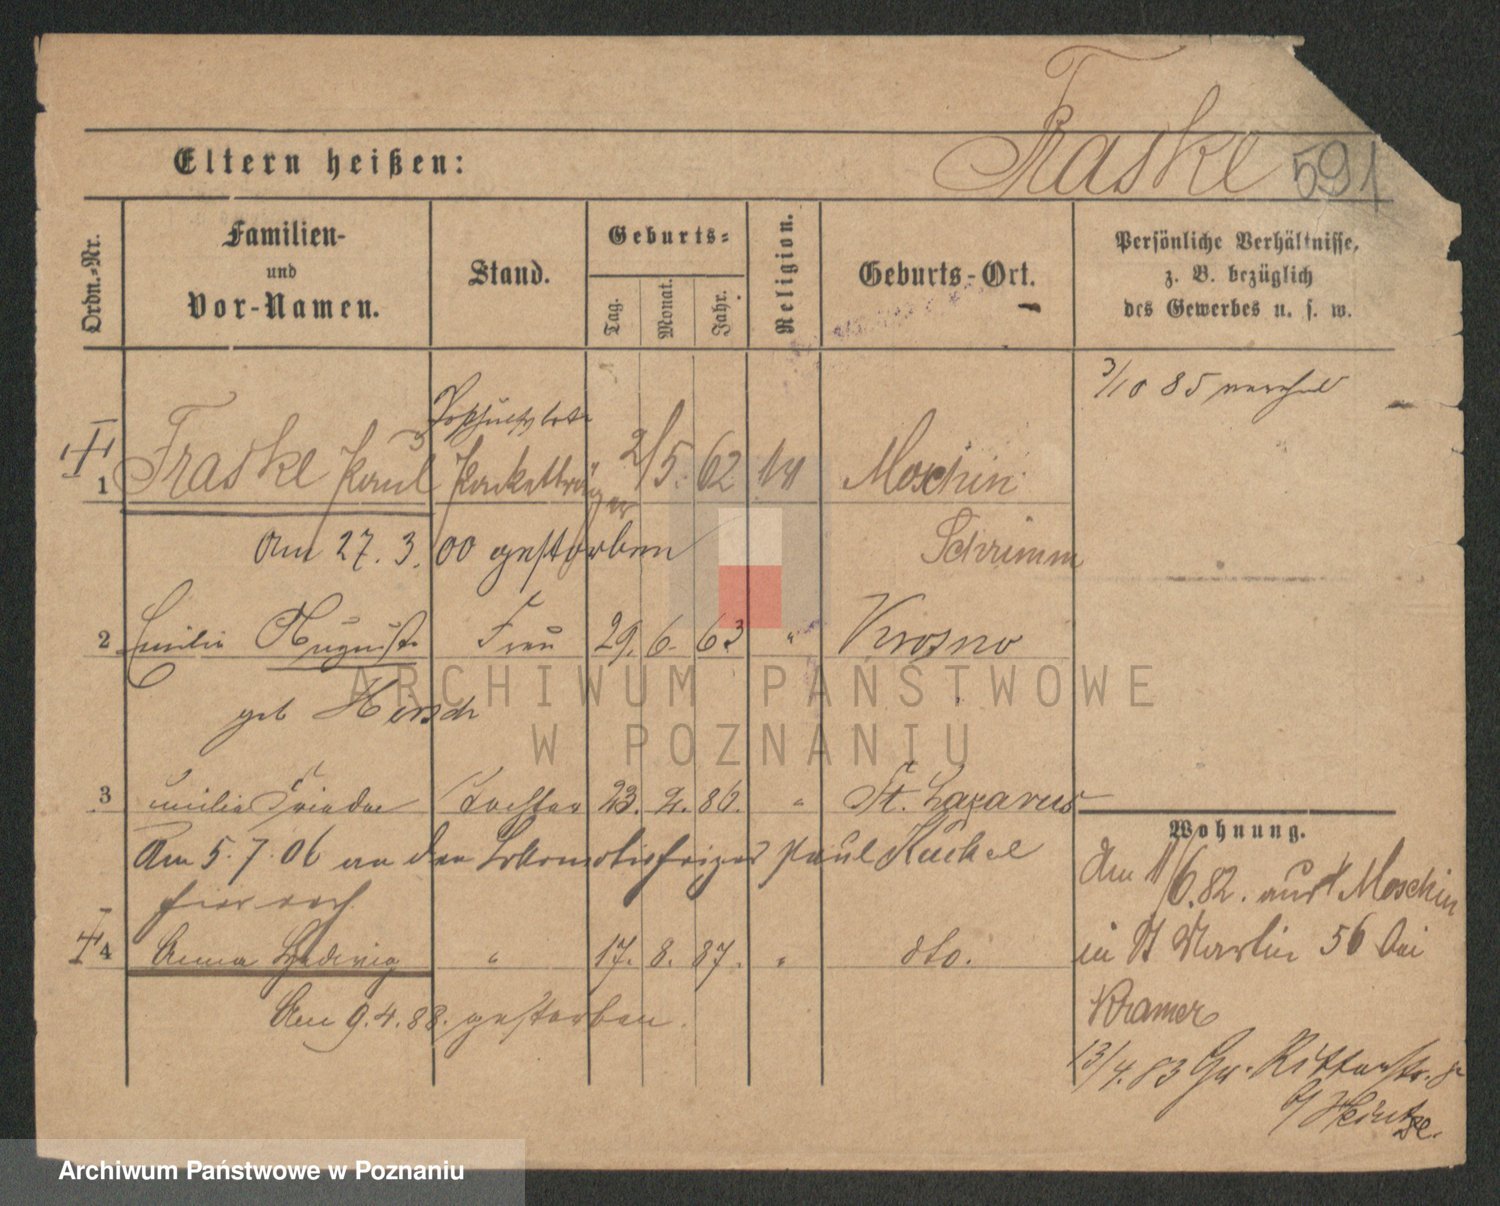 Fraske 591
Eltern heißen:
Ordn.-Nr.
Familien-
und
Vor-Namen.
Stand.
Geburts-
Tag.
Monat.
Jahr.
Religion.
Geburts-Ort.
Persönliche Verhältnisse,
z. B. bezüglich
des Gewerbes u. s. w.
3/10 85
1 Fraske Paul Packetträger 2/5. 62 Moschin
Schrimm
Am 27. 3. 00 gestorben
2 Emilie August Frau 29. 6. 63 " Krosno
geb Hirsch
3 Emilie Frieda Tochter 23. 86. " St. Lazarus
Am 5. 7. 06 an den Paul Kuckel
4 Anna Hedwig " 17. 8. 87. " dto.
Am 9. 4. 88. gestorben.
Wohnung.
Am 1/6. 82. aus Moschin
in St Martin 56 bei
Kramer
13/4. 83 Gr. Ritterstr.
b/ Heintze.
ARCHIWUM PAŃSTWOWE
W POZNANIU
Archiwum Państwowe w Poznaniu